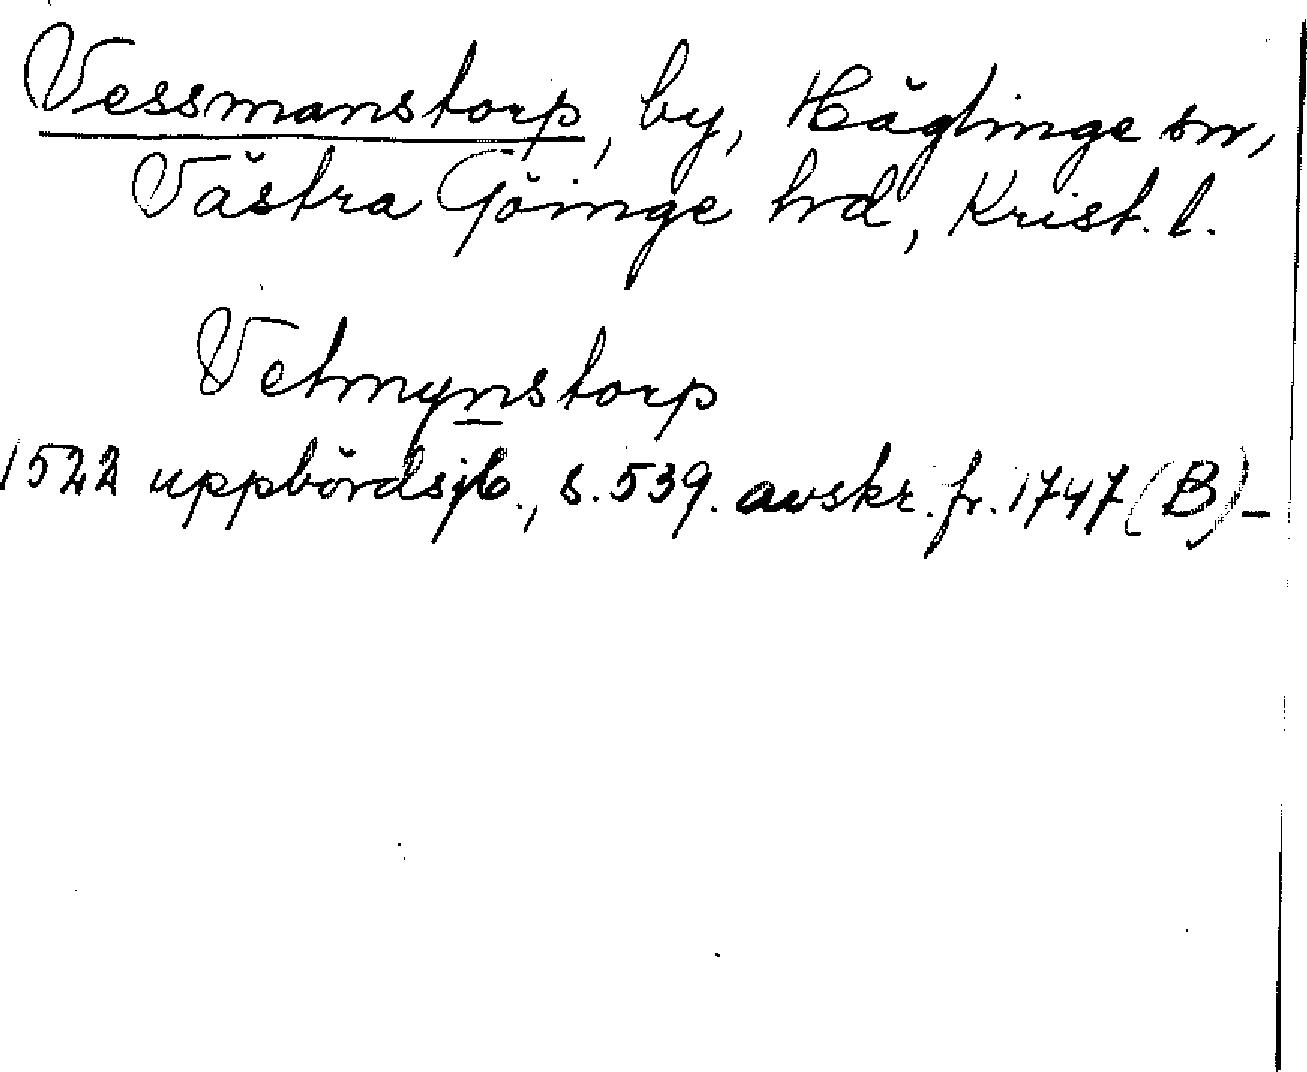 Vessmanstorp, by, Häglinge sn,
Västra Göinge hrd, Krist. l.
Vetmynstorp
1522 uppbördsjb., s. 539. avskr. fr. 1747 (B) –